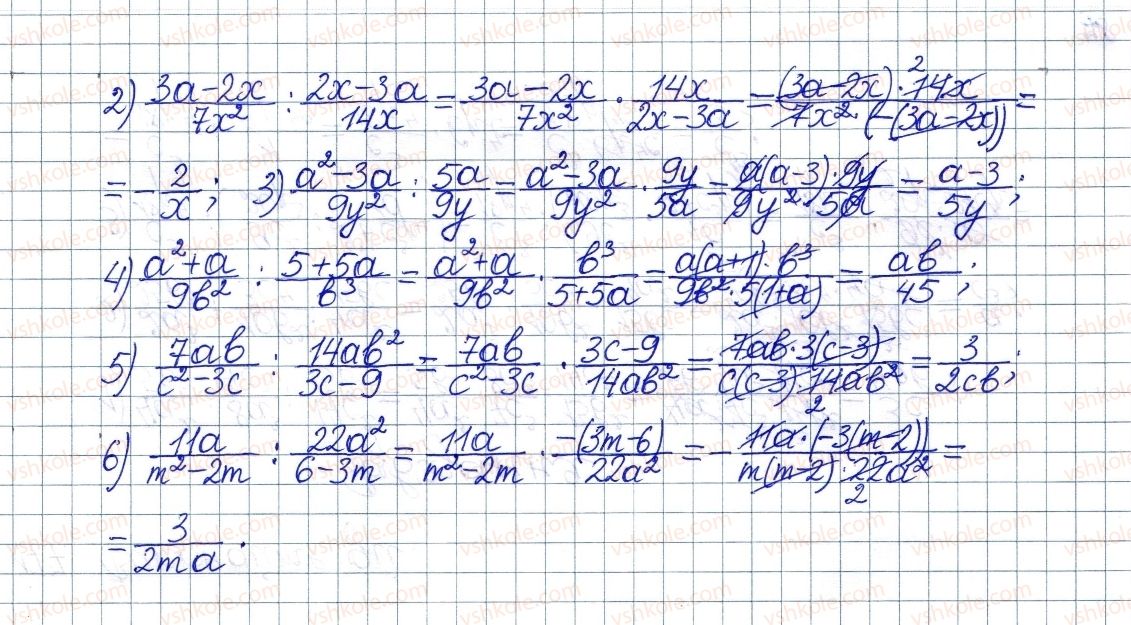 2) (3a-2x)/(7x²) : (2x-3a)/(14x) = (3a-2x)/(7x²) · (14x)/(2x-3a) = ((3a-2x)·²14x)/(7x²·(-(3a-2x))) =
= -2/x; 3) (a²-3a)/(9y²) : (5a)/(9y) = (a²-3a)/(9y²) · (9y)/(5a) = (a(a-3)·9y)/(9y²·5a) = (a-3)/(5y);
4) (a²+a)/(9b²) : (5+5a)/(b³) = (a²+a)/(9b²) · (b³)/(5+5a) = (a(a+1)·b³)/(9b²·5(1+a)) = (ab)/(45);
5) (7ab)/(c²-3c) : (14ab²)/(3c-9) = (7ab)/(c²-3c) · (3c-9)/(14ab²) = (7ab·3(c-3))/(c(c-3)·14ab² 2) = 3/(2cb);
6) (11a)/(m²-2m) : (22a²)/(6-3m) = (11a)/(m²-2m) · (-(3m-6))/(22a²) = -(11a·(-3(m-2)))/(m(m-2)·22a² 2) =
= 3/(2ma).
vshkole.com